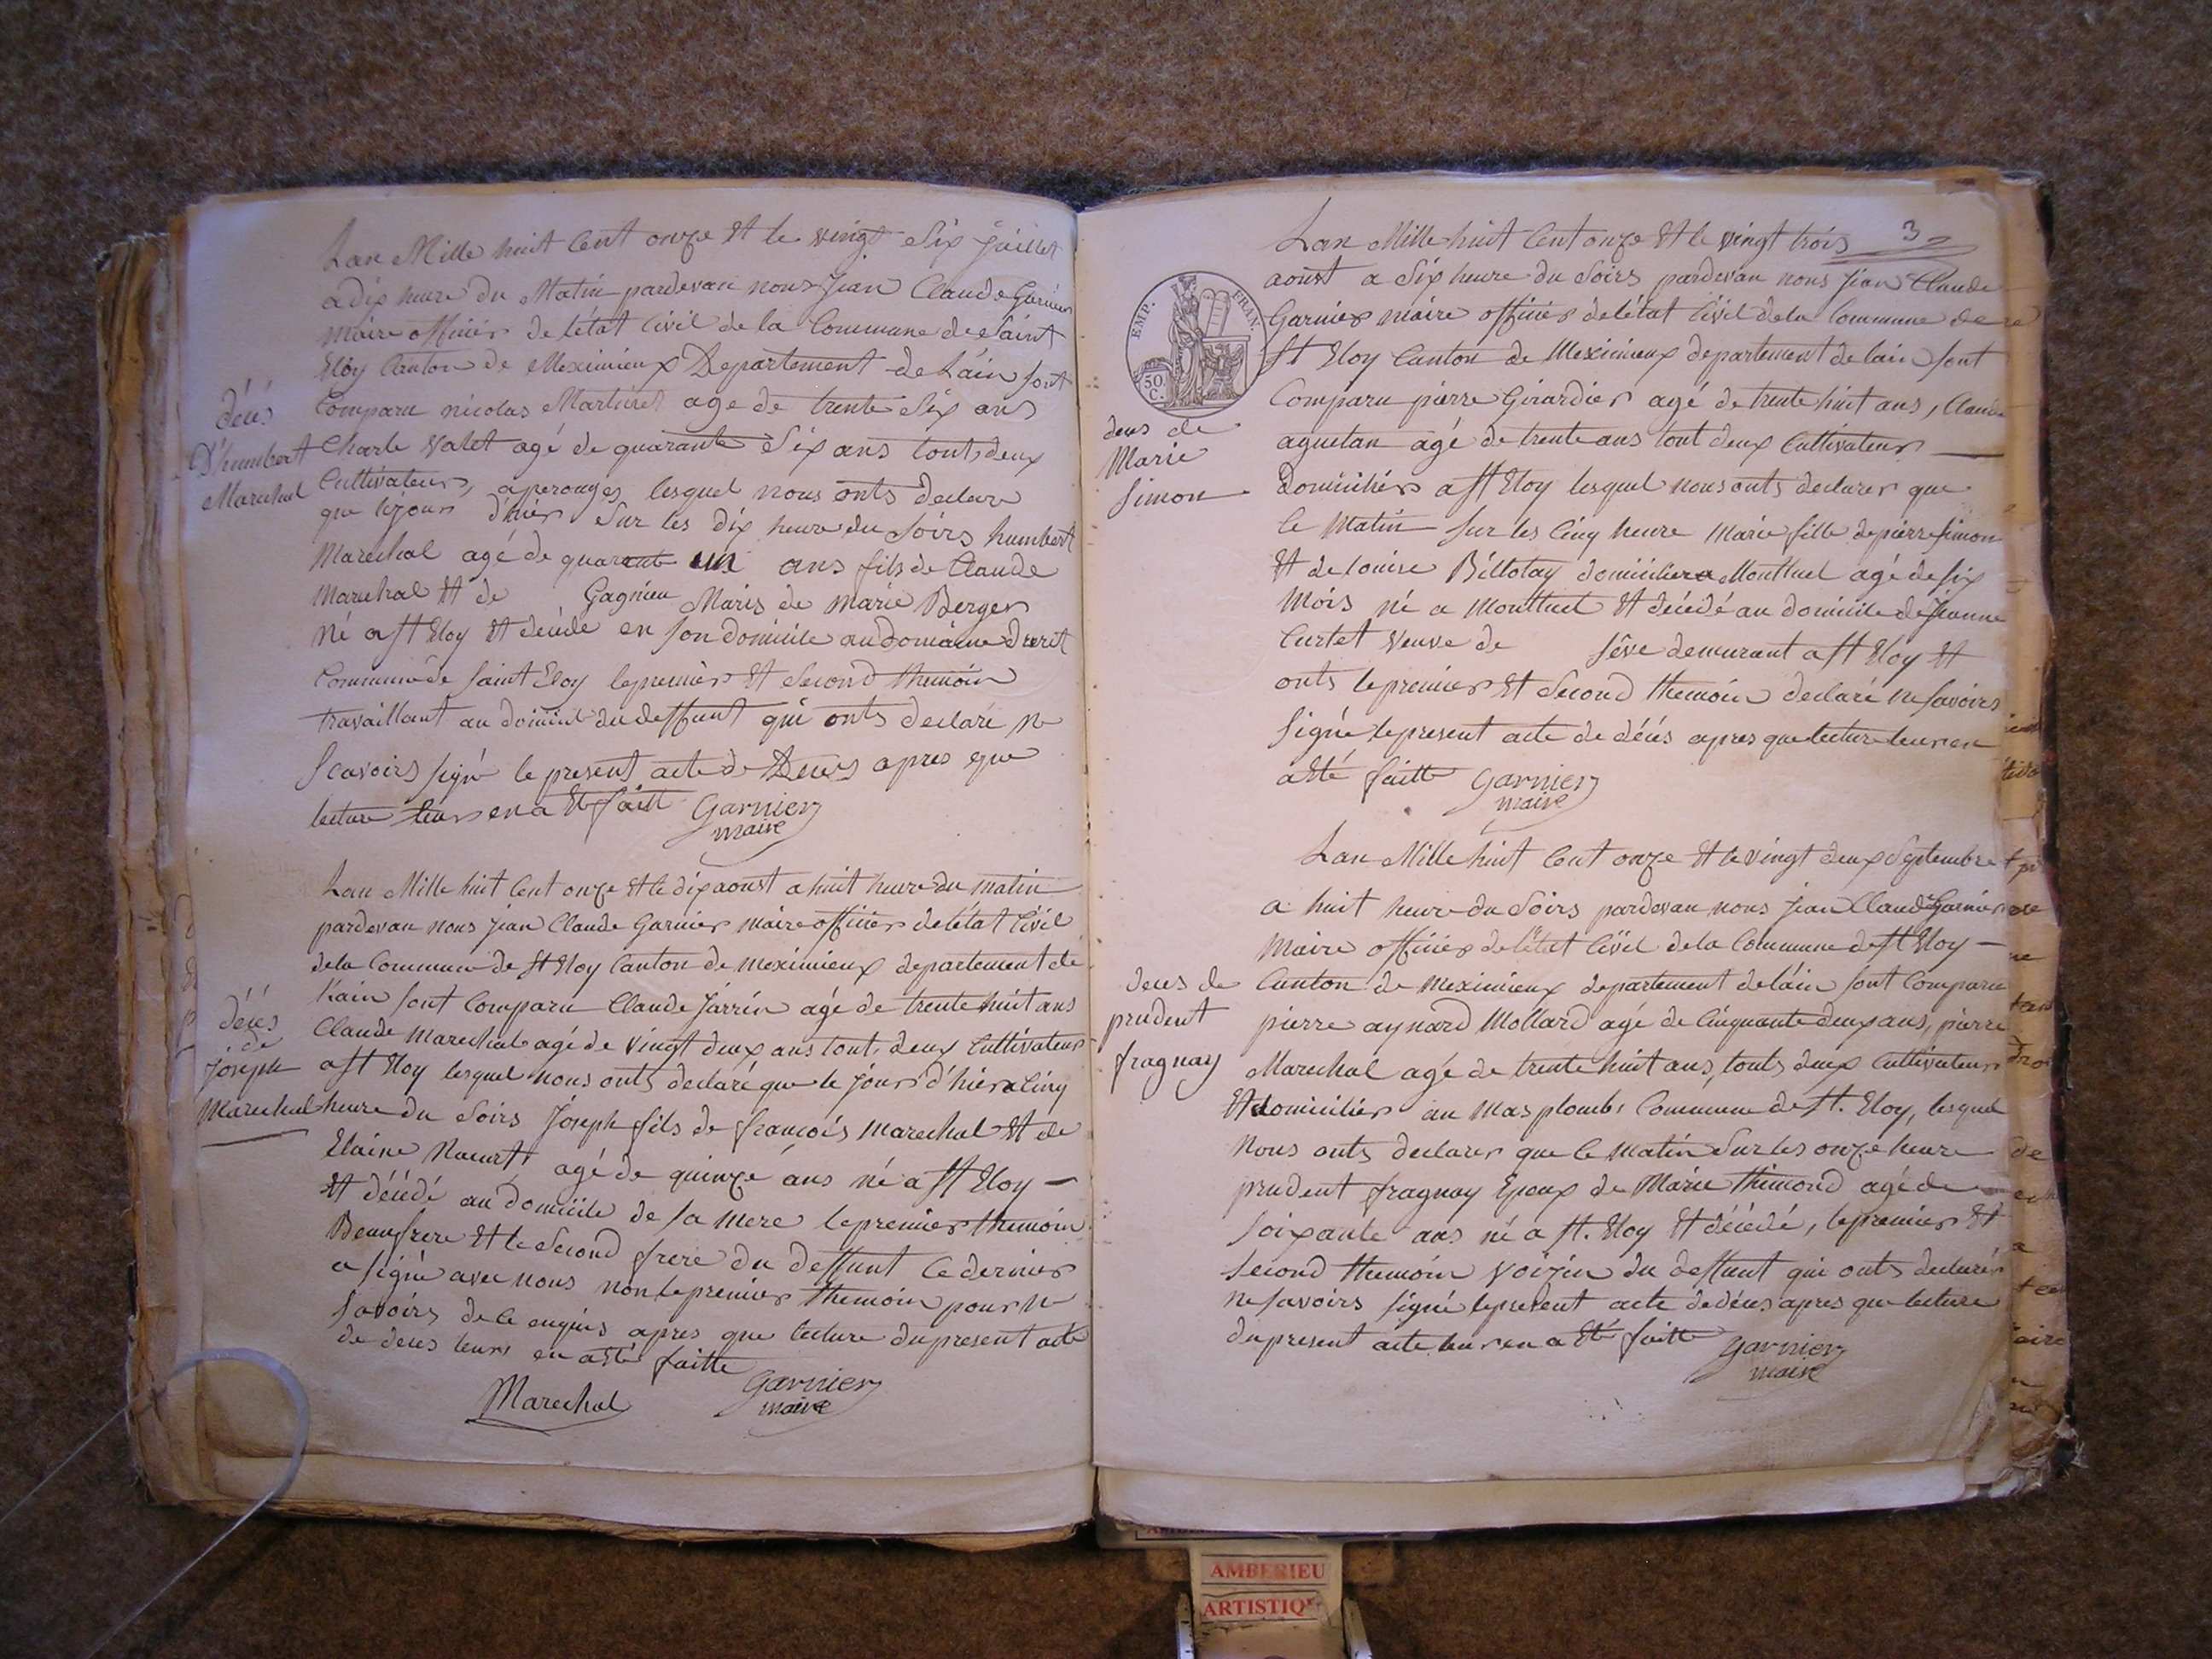 Lan Mille huit Cent onze et le vingt Six juillet
a dix heure du Matin pardevan nous Jean Claude Garnier
Maire officier de l'état Civil de la Commune de Saint
Eloy Canton de Meximieux Departement de Láin sont
déces
Comparu nicolas Martinet age de trente Six ans
D'humbert
Charle valet agé de quarante Six ans touts deux
Marechal
Cultivateurs, aperouges lesquel nous onts declare
que le jours d'hier Sur les dix heure du Soirs humbert
Marechal agé de quarante un ans fils de Claude
Marechal et de Gagnieu Maris de Marie Berger
Né a St Eloy et décéde en son domicile au domaine
Commune de Saint Eloy le premier et Second themoin
travaillant au domicile du deffunt qui onts declaré ne
Scavoirs signé le present acte de Deces apres que
lecture leurs en a Eté faitt
Garnier
maire
Lan Mille huit Cent onze et le dix aoust a huit heure du matin
pardevan nous jean Claude Garnier maire officier de l'état Civil
de la Commune de St Eloy Canton de meximieux departement de
l'ain sont Comparu Claude Jarrin agé de trente huit ans
déces
de
Joseph
Marechal
Claude Marechal agé de vingt deux ans tout deux Cultivateur
a St Eloy lesquel nous onts declaré que le jours d'hier a Cinq
heure du Soirs Joseph fils de françois Marechal et de
Elaine agé de quinze áns né a St Eloy —
et décédé au domicile de sa mere le premier themoin
Beaufrere et le Second frere du deffunt Ce dernier
a signé avec nous non le premier themoin pour ne
Savoirs de Ce enquis apres que lecture du present acte
de deces leurs en a Eté faitte
Marechal
Garnier
maire
3
Lan Mille huit Cent onze et le vingt trois
aoust a Six heure du Soirs pardevan nous jean Claude
EMP. FRAN.
50 C.
Garnier maire officier de l'état Civil de la Commune de
St Eloy Canton de Meximieux departement de lain sont
Comparu pierre Girardier agé de trente huit ans, Claude
deces de
Marie
Simon
aguetan agé de trente ans tout deux Cultivateur —
Domicilier a St Eloy lesquel nous onts declarer que
le Matin sur les Cinq heure Marie fille de pierre simon
et de louise Billotay domicilier a Montluel agé de six
Mois né a Montluel et décédé au domicile de jeanne
Curtet veuve de séve demurant a St Eloy et
onts le premier et Second themoin declaré ne savoirs
signé le present acte de décés apres que lecture leur en
a Eté faitte
Garnier
maire
Lan Mille huit Cent onze et le vingt deux Septembre
a huit heure du Soirs pardevan nous jean Claude Garnier
Maire officier de l'état Civil de la Commune de St Eloy —
deces de
prudent
fragnay
Canton de Meximieux departement de láin sont Comparu
pierre aynard Mollard agé de Cinquante deux ans, pierre
Marechal agé de trente huit ans, touts deux Cultivateur
et domicilier au Mas plombs Commune de St. Eloy, lesquel
Nous onts declarer que le Matin Sur les onze heure
prudent fragnay Epoux de Marie thimond agé de
soixante ans né a St. Eloy et décédé, le premier et
second themoin voizin du deffunt qui onts declarér
ne savoirs signé le present acte de déces apres que lecture
du present acte leur en a Eté faitte
Garnier
maire
AMBERIEU
ARTISTIQ